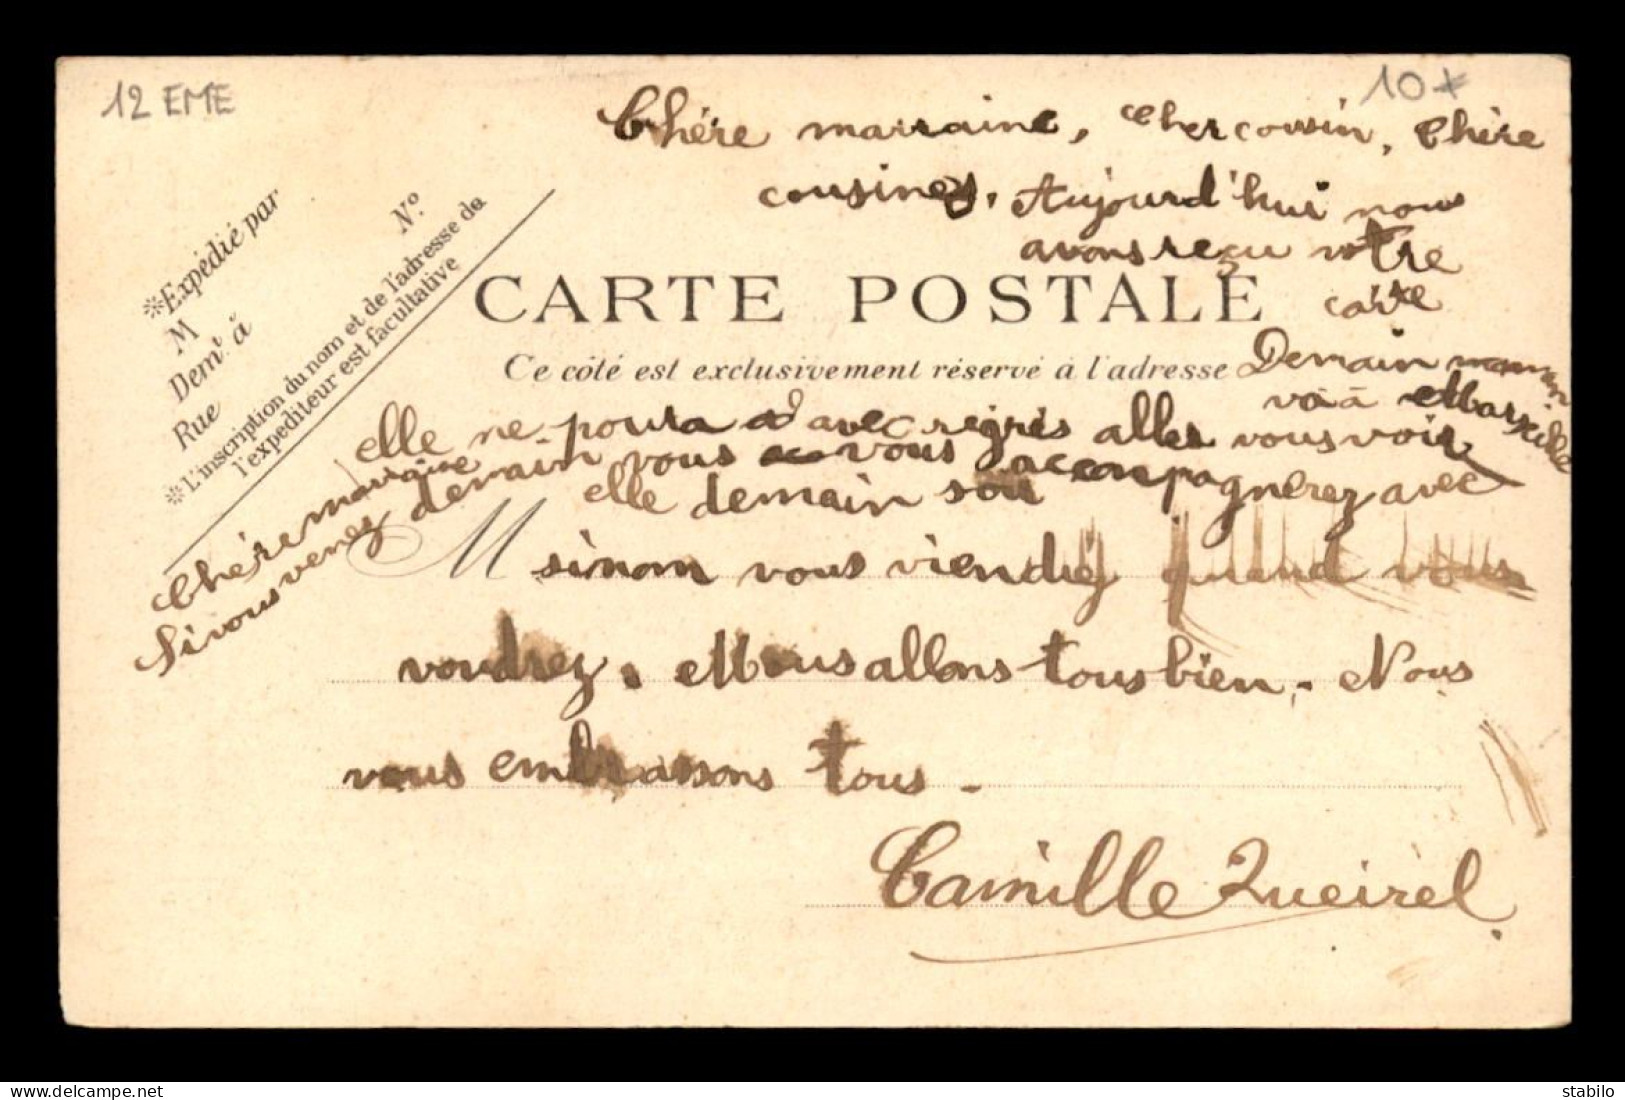 12 EME
10 x
Chére marraine, cher cousin, Chère
cousines, Aujourd'hui nous
avons reçu votre
carte
CARTE POSTALE
Ce côté est exclusivement réservé à l'adresse
Demain maman
va à Marseille
elle ne poura avec régrès aller vous voir
Chére marraine
Si vous venez demain vous vous accompagnerez avec
elle demain soir
M
sinom vous viendréz quand vous
voudrez. Nous allons tous bien. Nous
vous embrassons tous.
Camille Queirel.
※Expédié par
M
Demt à
Rue
N.º
※L'inscription du nom et de l'adresse de
l'expéditeur est facultative
stabilo